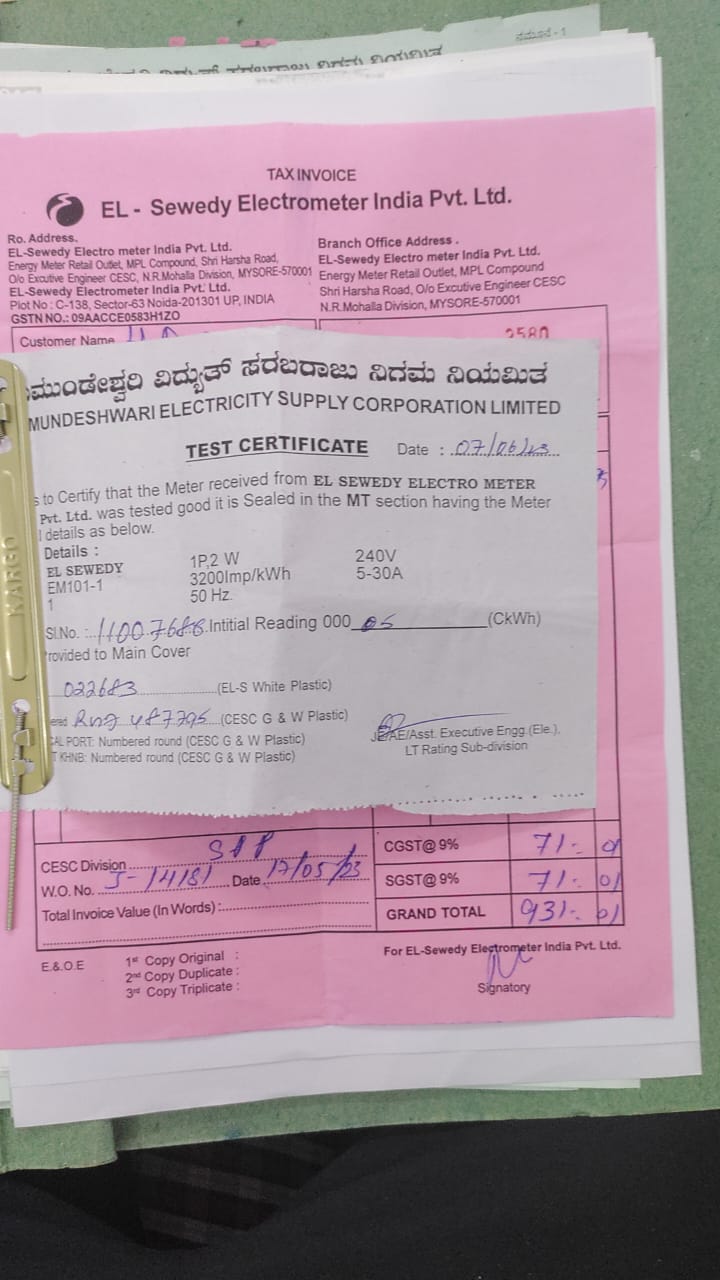 ನಮೂನೆ - 1
TAX INVOICE
EL - Sewedy Electrometer India Pvt. Ltd.
Ro. Address.
EL-Sewedy Electro meter India Pvt. Ltd.
Energy Meter Retail Outlet, MPL Compound, Shri Harsha Road,
O/o Excutive Engineer CESC, N.R.Mohalla Division, MYSORE-570001
EL-Sewedy Electrometer India Pvt. Ltd.
Plot No : C-138, Sector-63 Noida-201301 UP, INDIA
GSTN NO.: 09AACCE0583H1ZO
Branch Office Address .
EL-Sewedy Electro meter India Pvt. Ltd.
Energy Meter Retail Outlet, MPL Compound
Shri Harsha Road, O/o Excutive Engineer CESC
N.R.Mohalla Division, MYSORE-570001
Customer Name
2580
ಮುಂಡೇಶ್ವರಿ ವಿದ್ಯುತ್ ಸರಬರಾಜು ನಿಗಮ ನಿಯಮಿತ
MUNDESHWARI ELECTRICITY SUPPLY CORPORATION LIMITED
TEST CERTIFICATE Date : 07/06/23
s to Certify that the Meter received from EL SEWEDY ELECTRO METER
Pvt. Ltd. was tested good it is Sealed in the MT section having the Meter
details as below.
Details :
EL SEWEDY 1P,2 W 240V
EM101-1 3200Imp/kWh 5-30A
1 50 Hz.
Sl.No. : 11007688 Intitial Reading 000 05 (CkWh)
rovided to Main Cover
022683 (EL-S White Plastic)
ered Rng 487295 (CESC G & W Plastic)
AL PORT: Numbered round (CESC G & W Plastic)
T KHNB: Numbered round (CESC G & W Plastic)
JE/AE/Asst. Executive Engg.(Ele.),
LT Rating Sub-division
KARGO
CESC Division
W.O. No. J-14181 Date 17/05/23
Total Invoice Value (In Words) :
CGST@ 9% 71-. 01
SGST@ 9% 71-. 01
GRAND TOTAL 931-. 01
E.& O.E 1st Copy Original :
2nd Copy Duplicate :
3rd Copy Triplicate :
For EL-Sewedy Electrometer India Pvt. Ltd.
Signatory